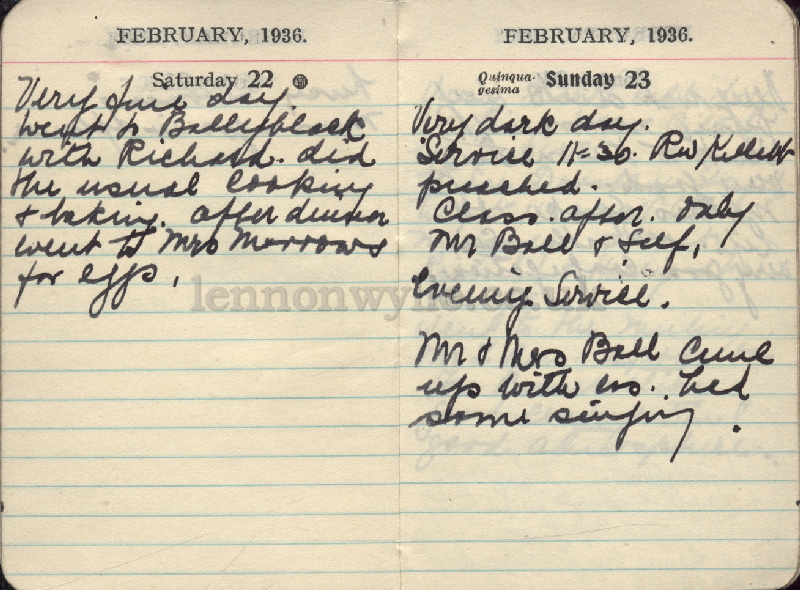 FEBRUARY, 1936.
Saturday 22
Very fine day.
went to Ballyblack
with Richard. did
the usual cooking
& baking. after dinner
went to Mrs Morrows
for eggs.
lennonwylie
FEBRUARY, 1936.
Quinqua-
gesima Sunday 23
Very dark day.
Service 11-30. Rev Kellett
preached.
Class. after. only
Mr Ball & Self,
Evening Service.
Mr & Mrs Ball came
up with us. had
some singing.